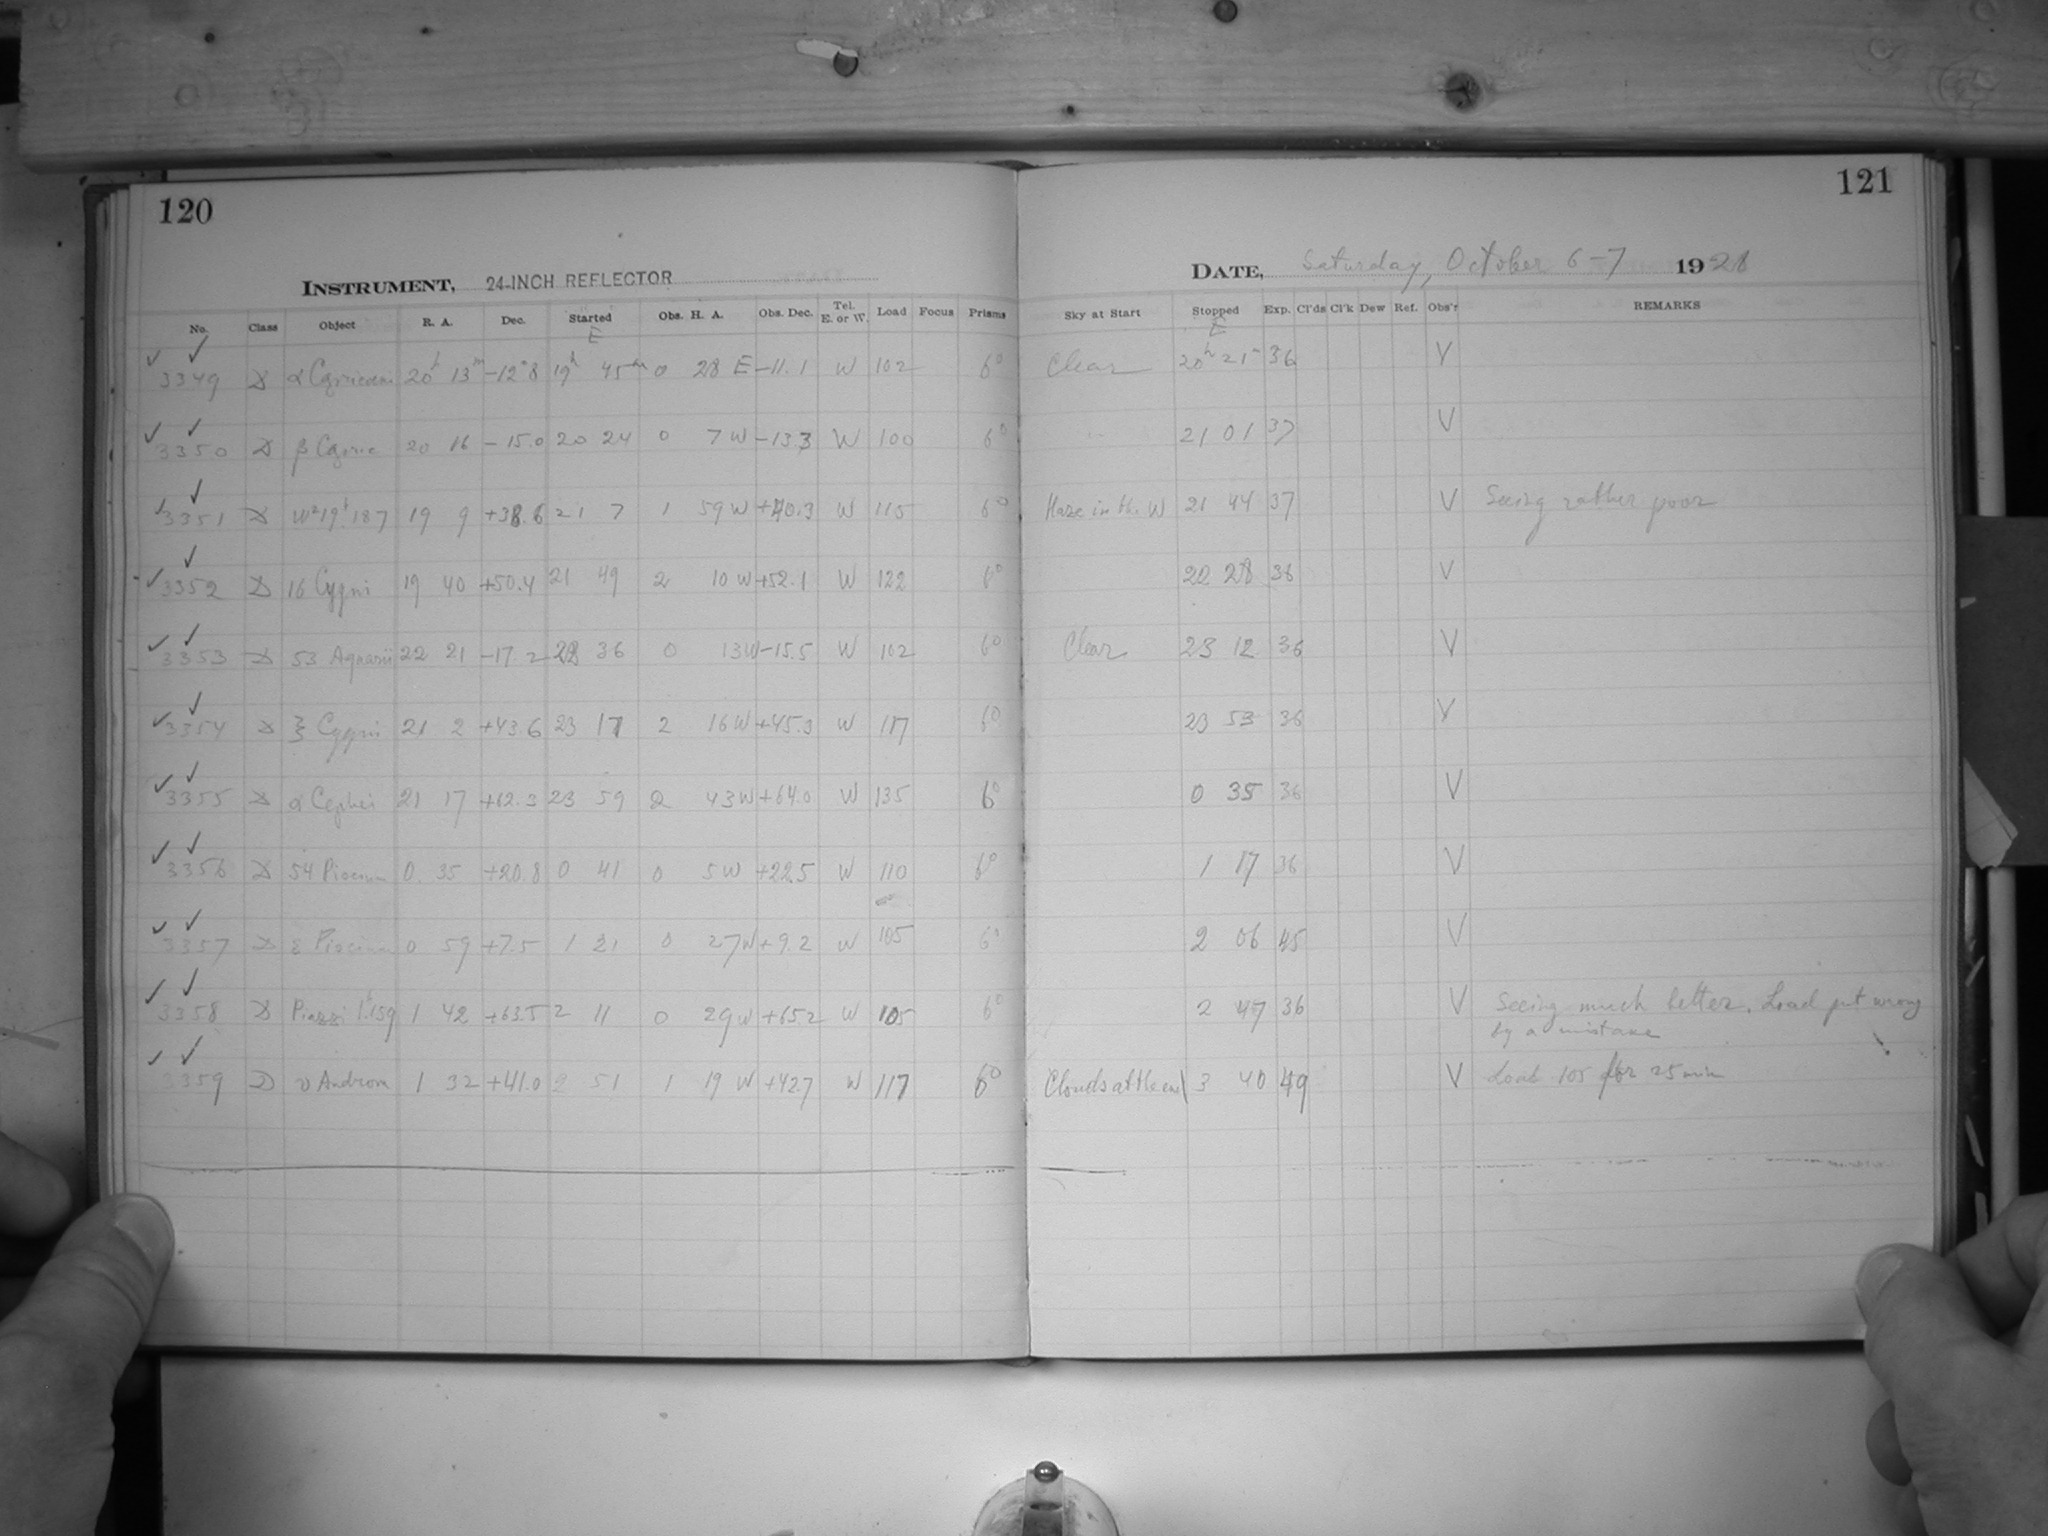 120
121
INSTRUMENT, 24-INCH REFLECTOR
DATE, Saturday, October 6-7 1928
No. Class Object R. A. Dec. Started Obs. H. A. Obs. Dec. Tel. E. or W. Load Focus Prisms Sky at Start Stopped Exp. Cl'ds Cl'k Dew Ref. Obs'r REMARKS
E E
✓ ✓ 3349 D α Capricorni 20h 13m -12°8 19h 45m 0 28 E -11.1 W 102 6° Clear 20h 21m 36 V
✓ ✓ 3350 D β Capric 20 16 -15.0 20 24 0 7 W -13.3 W 100 6° 21 01 37 V
✓ ✓ 3351 D W² 19h 187 19 9 +38.6 21 7 1 59 W +40.3 W 115 6° Haze in the W 21 44 37 V Seeing rather poor
✓ ✓ 3352 D 16 Cygni 19 40 +50.4 21 49 2 10 W +52.1 W 122 6° 22 28 36 V
✓ ✓ 3353 D 53 Aquarii 22 21 -17.2 22 36 0 13 W -15.5 W 102 6° Clear 23 12 36 V
✓ ✓ 3354 D ξ Cygni 21 2 +43.6 23 17 2 16 W +45.3 W 117 6° 23 53 36 V
✓ ✓ 3355 D α Cephei 21 17 +62.3 23 59 2 43 W +64.0 W 135 6° 0 35 36 V
✓ ✓ 3356 D 54 Piscium 0 35 +20.8 0 41 0 5 W +22.5 W 110 6° 1 17 36 V
✓ ✓ 3357 D ε Piscium 0 59 +7.5 1 21 0 27 W +9.2 W 105 6° 2 06 45 V
✓ ✓ 3358 D Piazzi 1h 159 1 42 +63.5 2 11 0 29 W +65.2 W 105 6° 2 47 36 V Seeing much better. Load put wrong
by a mistake
✓ ✓ 3359 D υ Androm 1 32 +41.0 2 51 1 19 W +42.7 W 117 6° Clouds at the end 3 40 49 V Load 105 for 25 min